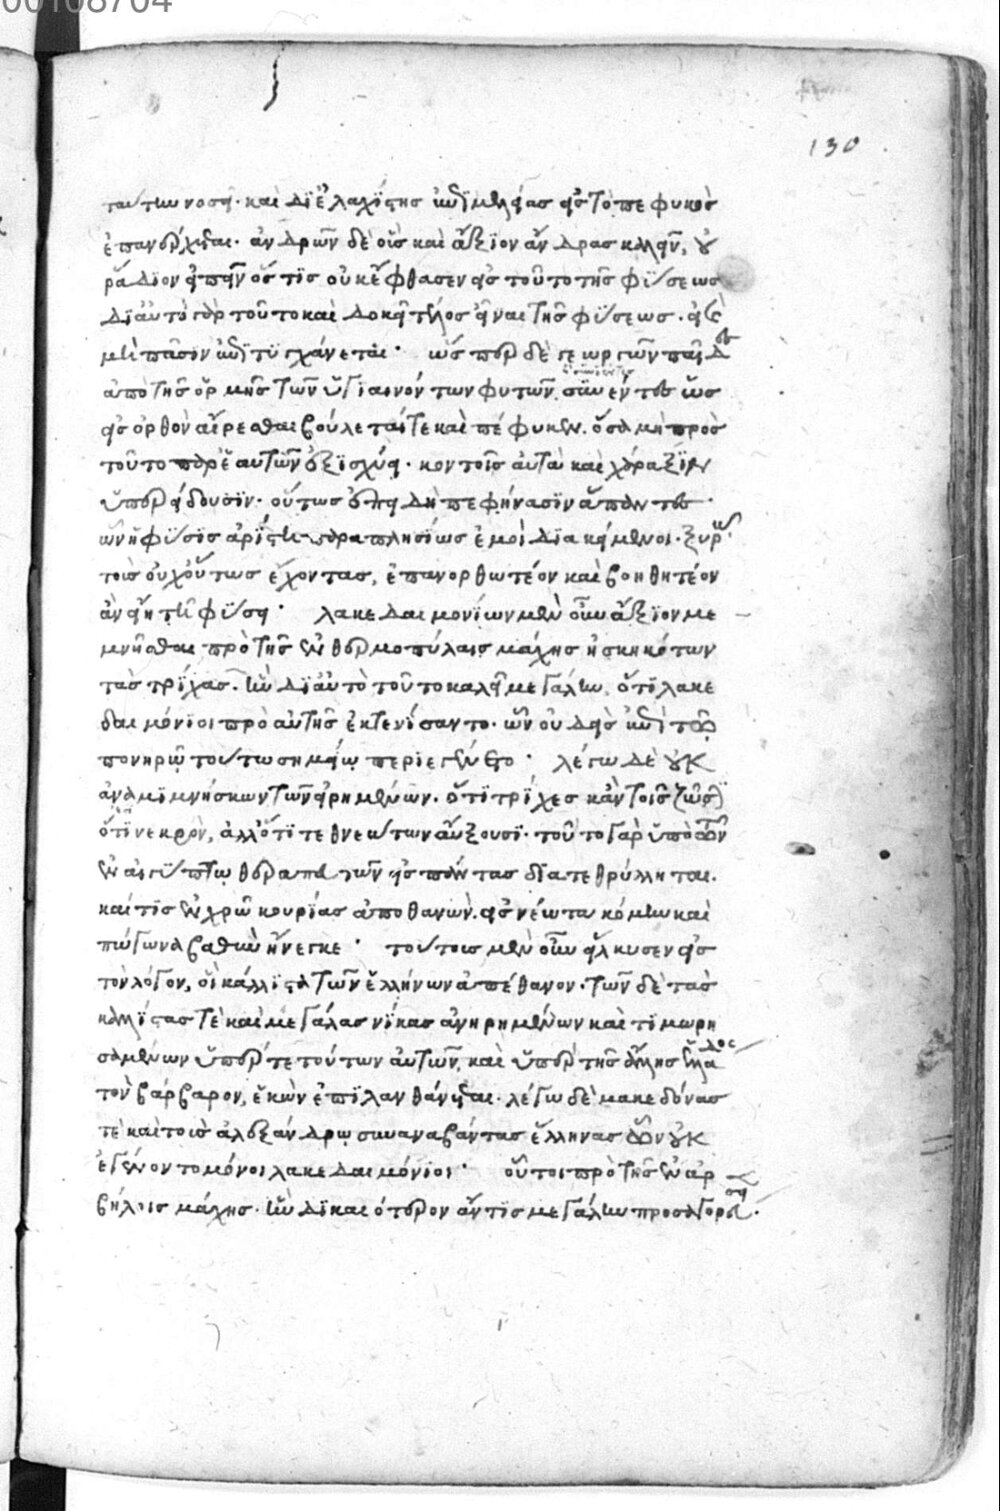 ταύτην νοσεῖ· καὶ δι' ἐλαχίστης ἐπιμελείας εἰς τὸ πεφυκὸς
ἐπανέρχεται. ἀνδρῶν δὲ οὓς καὶ ἄξιον ἄνδρας καλεῖν, οὐ
ῥάδιον εἰπεῖν ὅστις οὐκ ἔφθασεν εἰς τοῦτο τῆς φύσεως
δι' αὐτὸ γὰρ τοῦτο καὶ δοκεῖ τέλος εἶναι τῆς φύσεως. εἰ καὶ
μὴ πᾶσιν ἐπιτυγχάνεται· ὥσπερ δὲ γεωργῶν παῖδες
ἀπὸ τῆς ὁρμῆς τῶν ὑγιαινόντων φυτῶν συνέντες ὡς
εἰς ὀρθὸν αἴρεσθαι βούλεταί τε καὶ πέφυκεν. ὅσα μὴ πρὸς
τοῦτο παρ' ἑαυτῶν ἐξισχύει. κοντοῖς αὐτὰ καὶ χάραξιν
ὑπερείδουσιν. οὕτως ἐπειδὴ πεφήνασιν ἅπαντες
ὧν ἡ φύσις ἀρίστη παραπλησίως ἐμοὶ διακείμενοι. ξυρῷ
τοῖς οὐχ οὕτως ἔχοντας, ἐπανορθωτέον καὶ βοηθητέον
ἂν εἴη τῇ φύσει· λακεδαιμονίων μὲν οὖν ἄξιον με
μνῆσθαι πρὸ τῆς ἐν θερμοπύλαις μάχης ἠσκηκότων
τὰς τρίχας. ἣν δι' αὐτὸ τοῦτο καλεῖ μεγάλην, ὅτι λακε
δαιμόνιοι πρὸ αὐτῆς ἐκτενίσαντο. ὧν οὐδεὶς ἐπὶ τῷ
πονηρῷ τούτω σημείῳ περιεγένετο· λέγω δὲ οὐκ
ἀναμιμνήσκων τῶν εἰρημένων. ὅτι τρίχες κἀν τοῖς ζῶσιν
ὅτι νεκρὸν, ἀλλ' ὅτι τεθνεώτων αὔξουσι. τοῦτο γὰρ ὑπὸ τῶν
ἐν αἰγύπτῳ θεραπευτῶν εἰς πάντας διατεθρύλληται.
καί τις ἐν χρῷ κουρίας ἀποθανὼν. εἰς νέωτα κόμην καὶ
πώγωνα βαθὺν ἤνεγκε· τούτοις μὲν οὖν εἵλκυσεν εἰς
τὸν λόγον, οἳ κάλλιστα τῶν ἑλλήνων ἀπέθανον. τῶν δὲ τὰς
καλλίστας τὲ καὶ μεγάλας νίκας ἀνῃρημένων καὶ τιμωρη
σαμένων ὑπέρ τε τούτων αὐτῶν, καὶ ὑπὲρ τῆς ἄλλης ἑλλάδος
τὸν βάρβαρον, ἑκὼν ἐπιλανθάνεται. λέγω δὲ μακεδόνας
τὲ καὶ τοὺς ἀλεξάνδρῳ συναναβάντας ἕλληνας ὧν οὐκ
ἐγένοντο μόνοι λακεδαιμόνιοι· οὗτοι πρὸ τῆς ἐν ἀρ
βήλοις μάχης. ἣν δικαιότερον ἄν τις μεγάλην προσαγορεύοι.